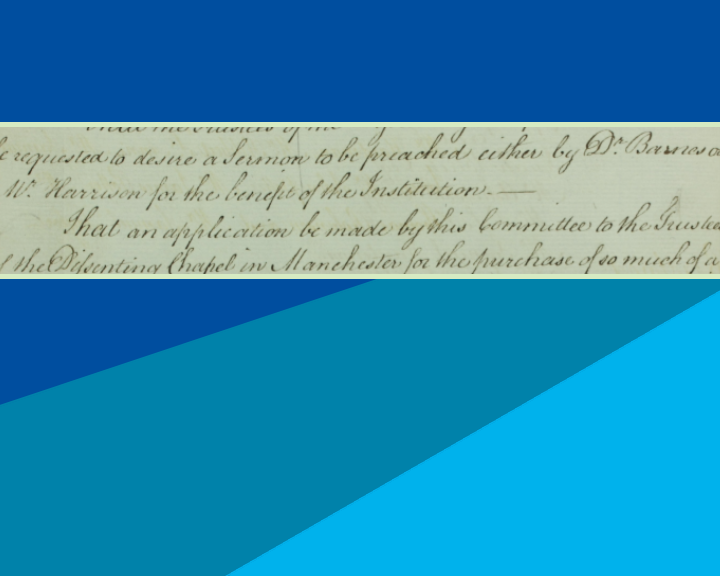 be requested to desire a Sermon to be preached either by Dr. Barnes
Mr. Harrison for the benefit of the Institution. —
That an application be made by this Committee to the Trustees
of the Dissenting Chapel in Manchester for the purchase of so much of a